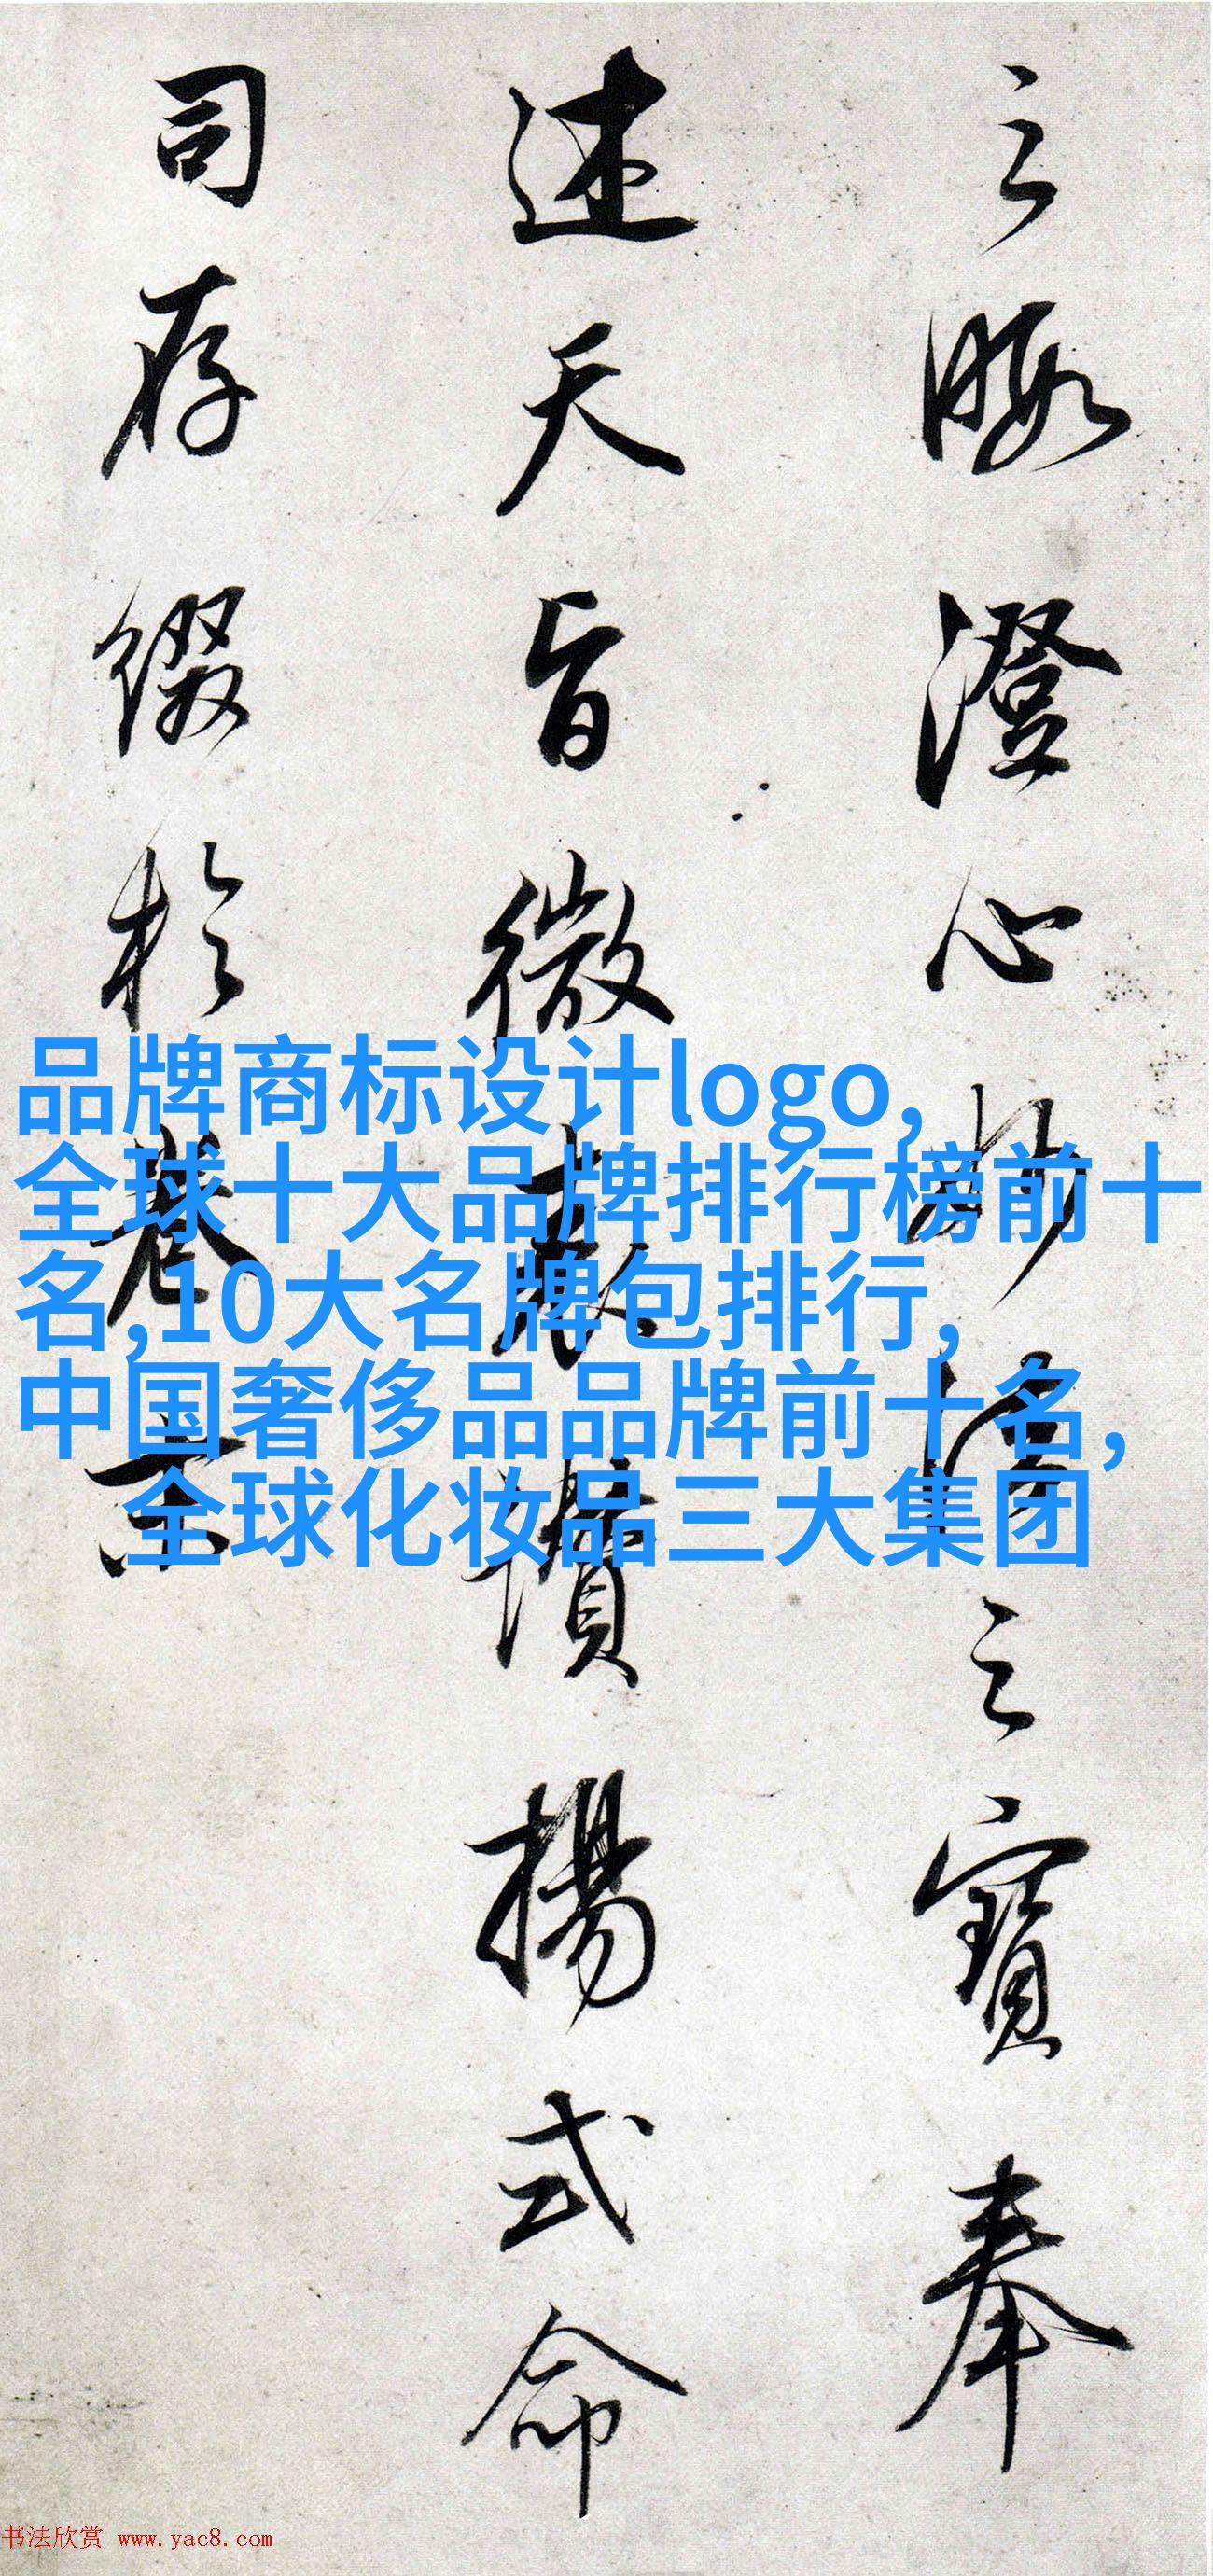 之暇澄心妙法之寶奉
述天旨微表讚揚式命
司存綴於卷末
品牌商标设计logo,
全球十大品牌排行榜前十
名,10大名牌包排行,
中国奢侈品品牌前十名,
全球化妆品三大集团
书法欣赏 www.yac8.com